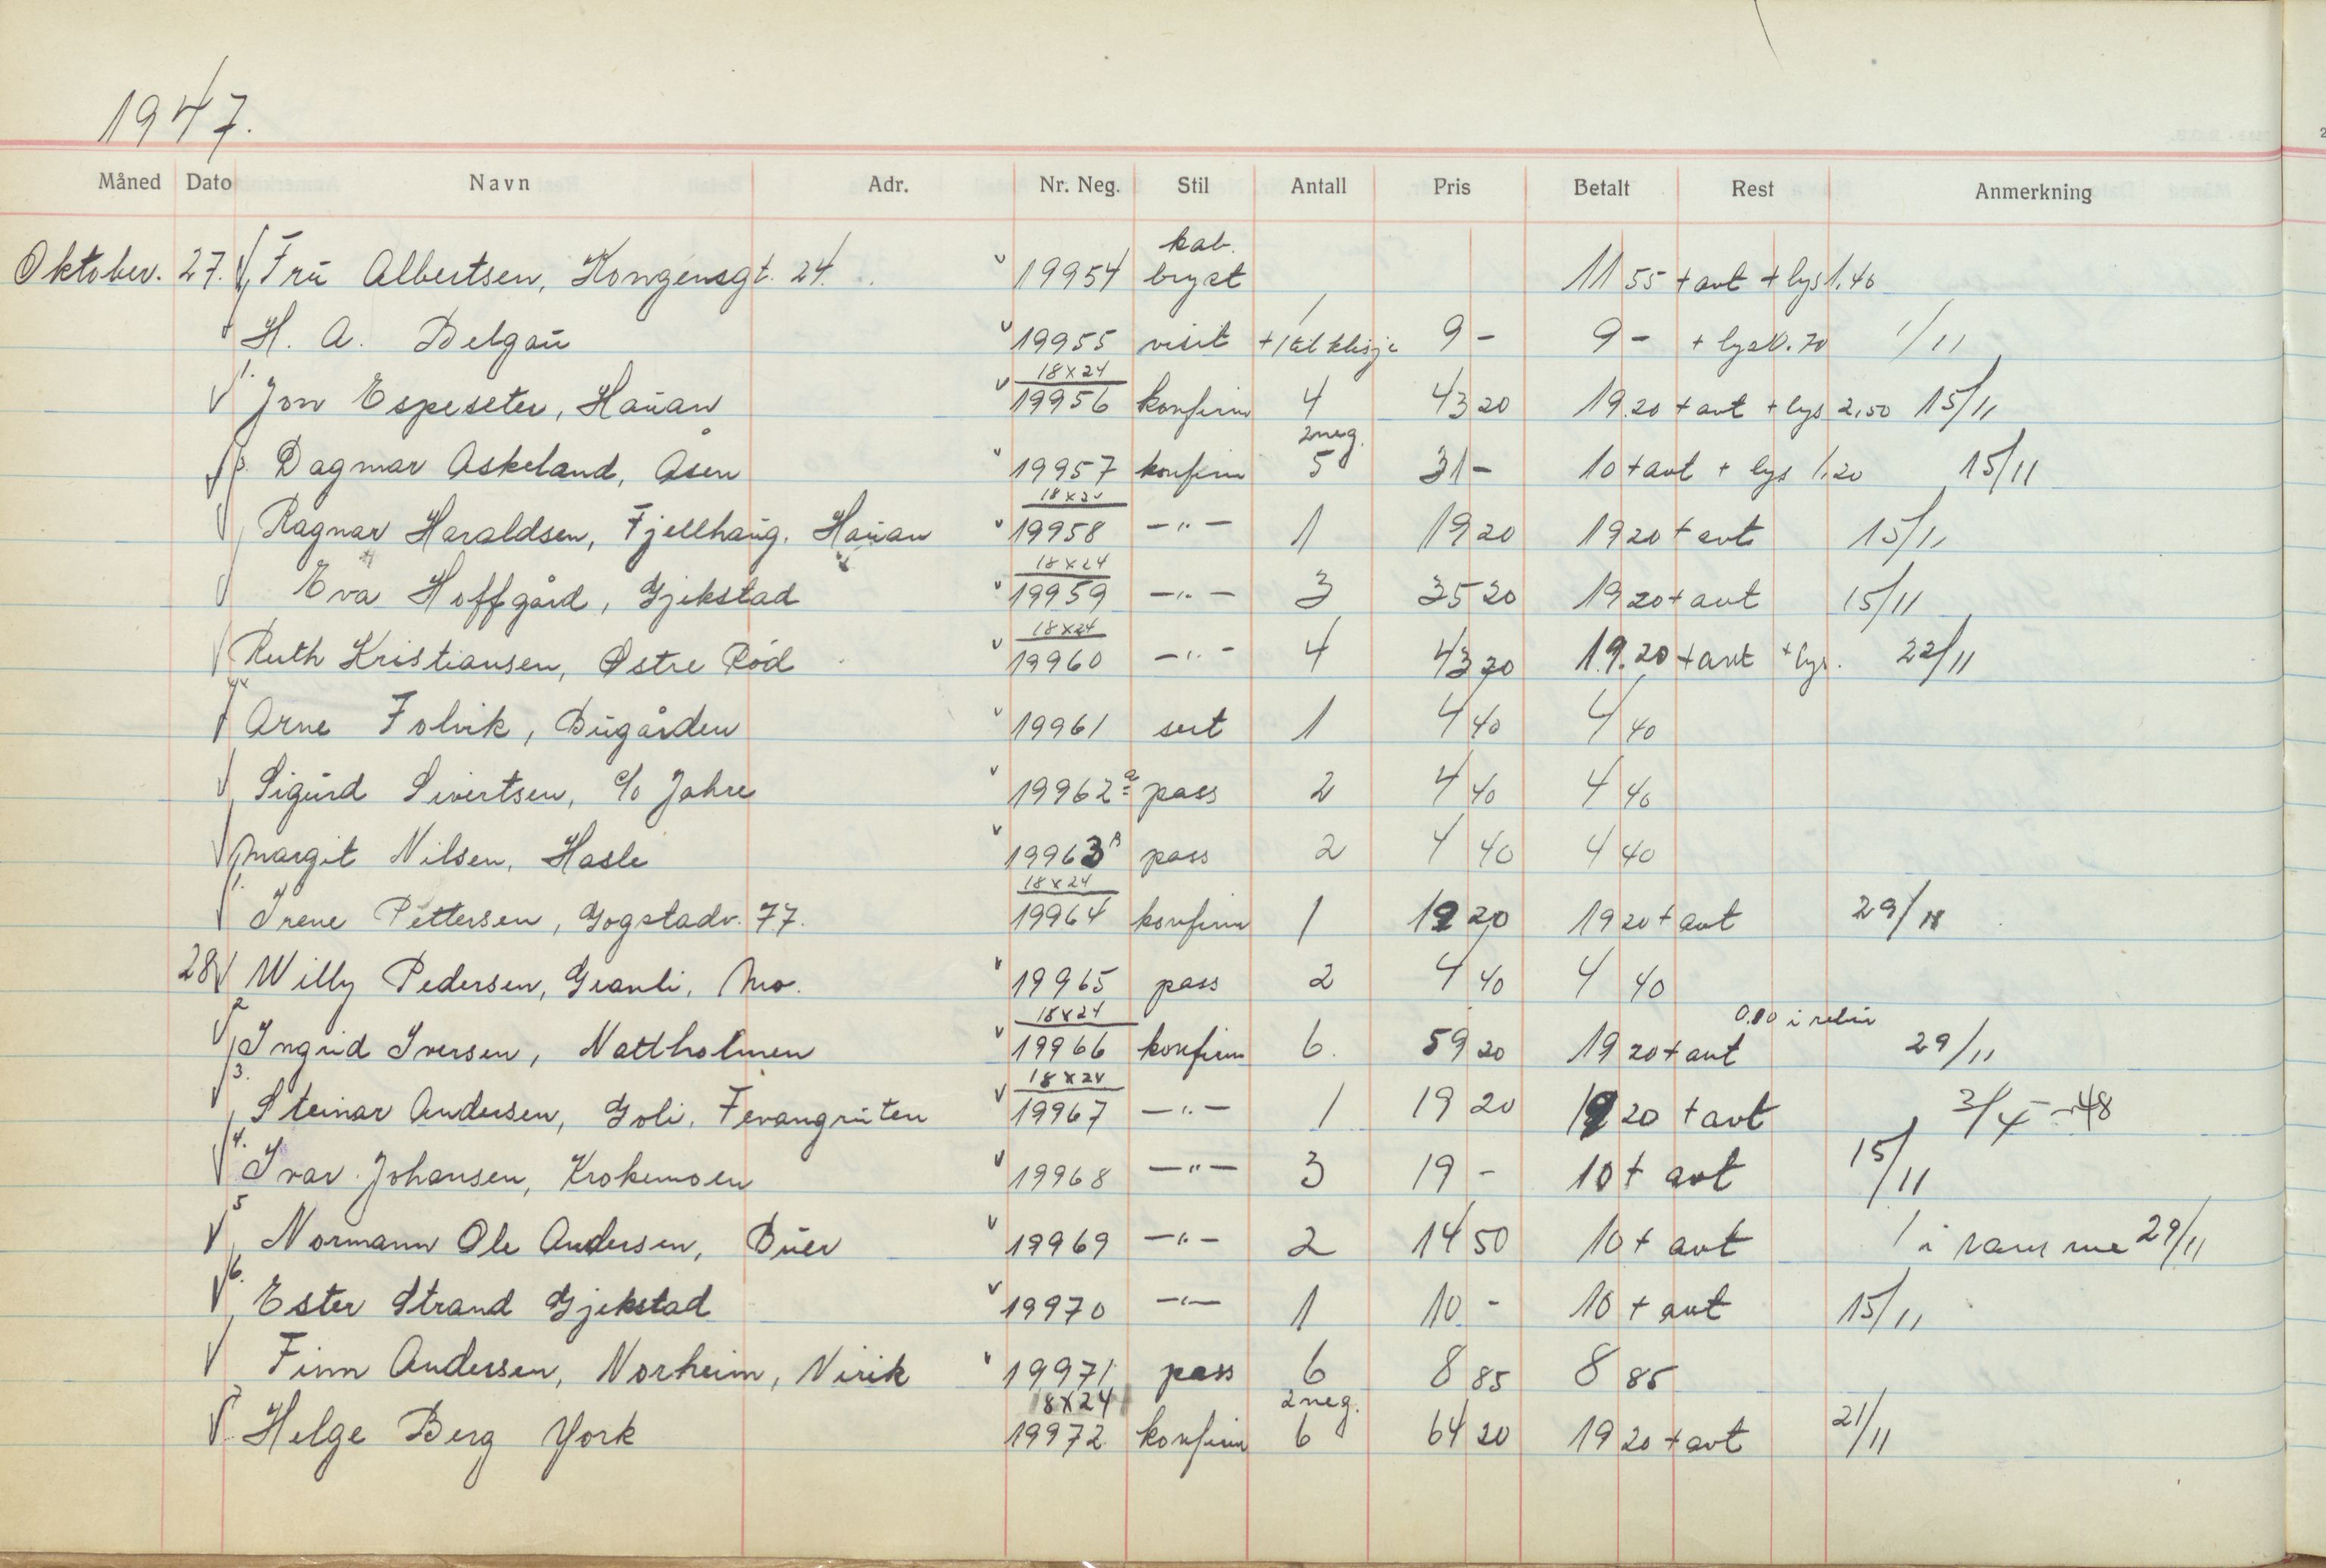 1947.
Måned Dato Navn Adr. Nr. Neg. Stil Antall Pris Betalt Rest Anmerkning
kab.
Oktober. 27. Fru Albertsen, Kongensgt. 24. 19954 bryst 11 55 + avt + lys 1.40
H. A. Delgau 19955 visit + 1 til klisje 9 - 9 - + lys 0.70 1/11
18x24
1. Jon Espeseter, Hauan 19956 konfirm 4 43 20 19.20 + avt + lys 2,50 15/11
2neg.
3. Dagmar Askeland, Åsen 19957 konfirm 5 31 - 10 + avt + lys 1,20 15/11
18x24
Ragnar Haraldsen, Fjellhaug. Hauan 19958 -"- 1 19 20 19 20 + avt 15/11
18x24
Eva Hoffgård, Gjekstad 19959 -"- 3 35 20 19 20 + avt 15/11
18x24
Ruth Kristiansen, Østre Rød 19960 -"- 4 43 20 19.20 + avt + lys. 22/11
Arne Folvik, Bugården 19961 sert 1 4 40 4 40
Sigurd Sivertsen, c/o Jahre 19962 a pass 2 4 40 4 40
Margit Nilsen, Hasle 19963 pass 2 4 40 4 40
18x24
1. Irene Pettersen, Gogstadv. 77. 19964 konfirm 1 19 20 19 20 + avt 29/11
28 Willy Pedersen, Granli, Mo. 19965 pass 2 4 40 4 40
18x24 0.80 i
2 Ingrid Iversen, Nattholmen 19966 konfirm 6. 59 20 19 20 + avt 29/11
18x24
3. Steinar Andersen, Goli, Fevangruten 19967 -"- 1 19 20 19 20 + avt 3/4 - 48
4. Ivar Johansen, Krokemoen 19968 -"- 3 19 - 10 + avt 15/11
5 Normann Ole Andersen, Buer 19969 -"- 2 14 50 10 + avt 1 i ramme 29/11
6. Ester Strand Gjekstad 19970 -"- 1 10 - 10 + avt 15/11
Finn Andersen, Norheim, Virik 19971 pass 6 8 85 8 85
18x24 2neg.
7 Helge Berg York 19972 konfirm 6 64 20 19 20 + avt 21/11